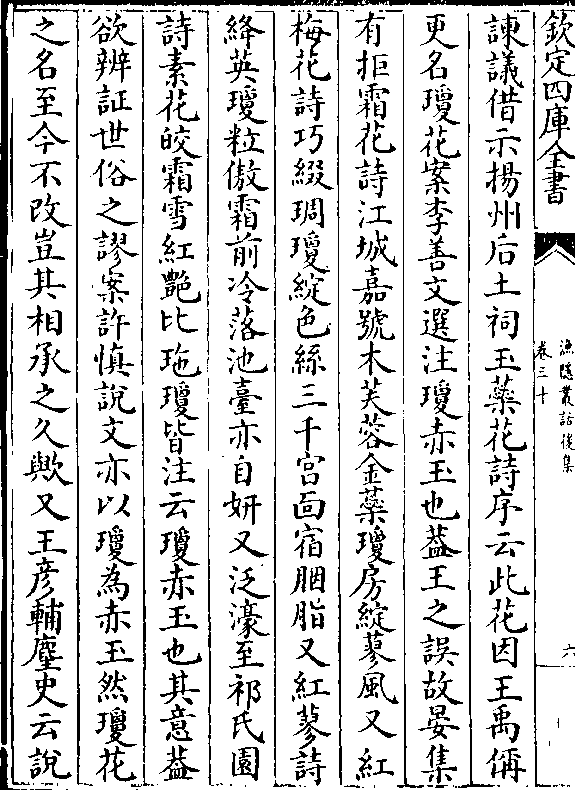 欽定四庫全書
漁隱叢話後集
卷三十
六
諫議借示揚州后土祠玉蘂花詩序云此花因王禹偁
更名瓊花案李善文選注瓊赤玉也葢王之誤故晏集
有拒霜花詩江城嘉號木芙蓉金蘂瓊房綻蓼風又紅
梅花詩巧綴琱瓊綻色絲三千宮面宿胭脂又紅蓼詩
絳英瓊粒傲霜前冷落池臺亦自妍又泛濠至祁氏園
詩素花皎霜雪紅艷比瑰瓊皆注云瓊赤玉也其意葢
欲辨証世俗之謬案許慎說文亦以瓊為赤玉然瓊花
之名至今不改豈其相承之久歟又王彦輔麈史云說